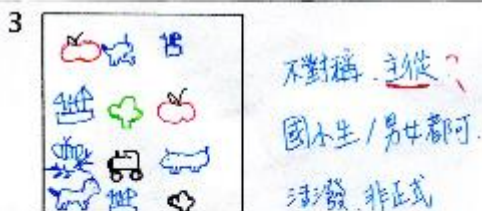 3
不對稱．主從？
國小生/男女都可．
活潑．非正式